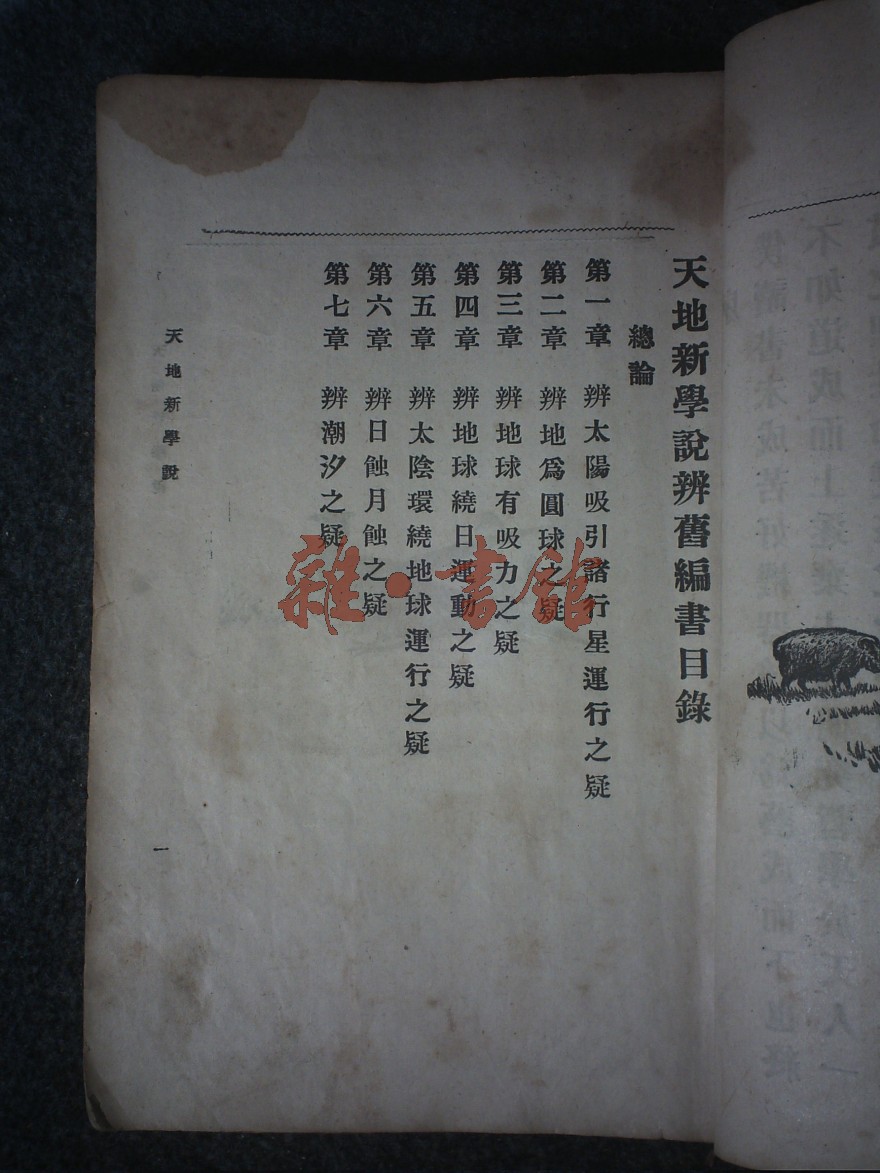 天地新學說辨舊編書目錄
總論
第一章 辨太陽吸引諸行星運行之疑
第二章 辨地爲圓球之疑
第三章 辨地球有吸力之疑
第四章 辨地球繞日運動之疑
第五章 辨太陰環繞地球運行之疑
第六章 辨日蝕月蝕之疑
第七章 辨潮汐之疑
天地新學說
一
雜·書館